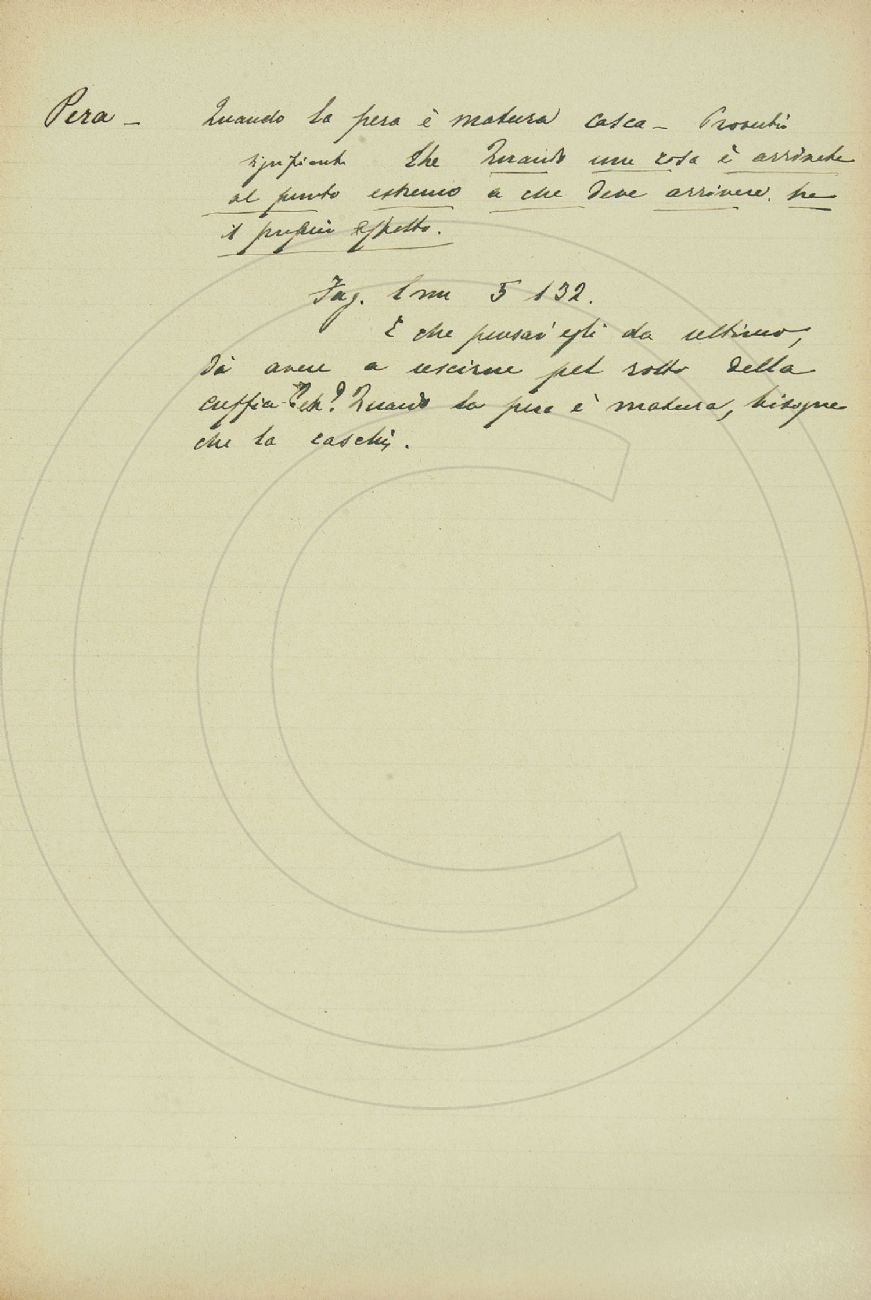 Pera - Quando la pera è matura casca - Proverbio
significante che Quando una cosa è arrivata
al punto estremo a che deve arrivare. ha
il proprio effetto.
Fag. Com 5 132.
E che pensav' egli da ultimo,
d' avere a uscirne pel rotto della
cuffia? Eh? Quando la pera è matura, bisogna
che la caschi.